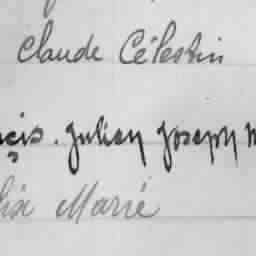 Claude Célestin
çis. Julien Joseph M
Marie